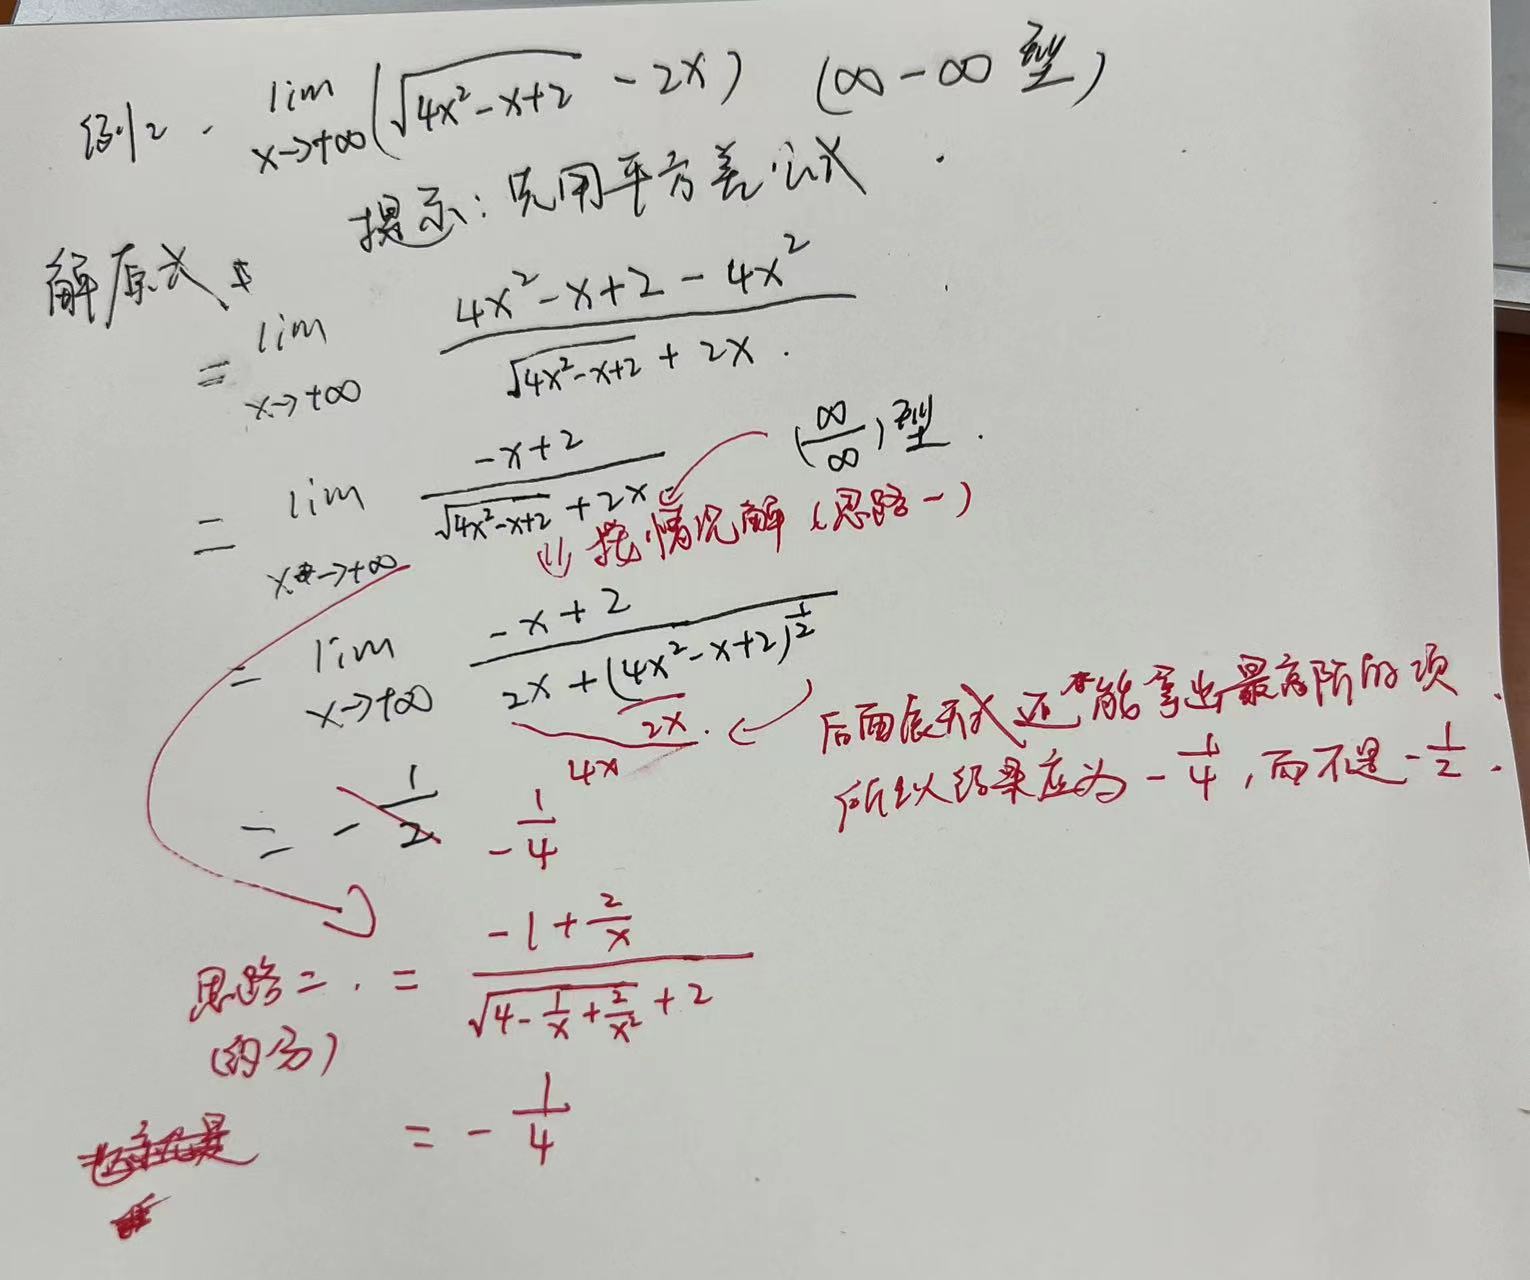 例2. lim x→+∞ (√(4x²-x+2) - 2x) (∞-∞ 型)
提示: 先用平方差公式
解原式
= lim x→+∞ (4x²-x+2-4x²)/(√(4x²-x+2) + 2x)
= lim x→+∞ (-x+2)/(√(4x²-x+2) + 2x) (∞/∞)型.
⇓ 抓情况解 (思路一)
= lim x→+∞ (-x+2)/(2x+(4x²-x+2)^(1/2))
2x
4x
后面底下式还能拿出最高阶的项.
所以结果应为 -1/4, 而不是 -1/2.
= -1/2 -1/4
思路二. = (-1+2/x)/(√(4-1/x+2/x²) + 2)
(约分)
= -1/4